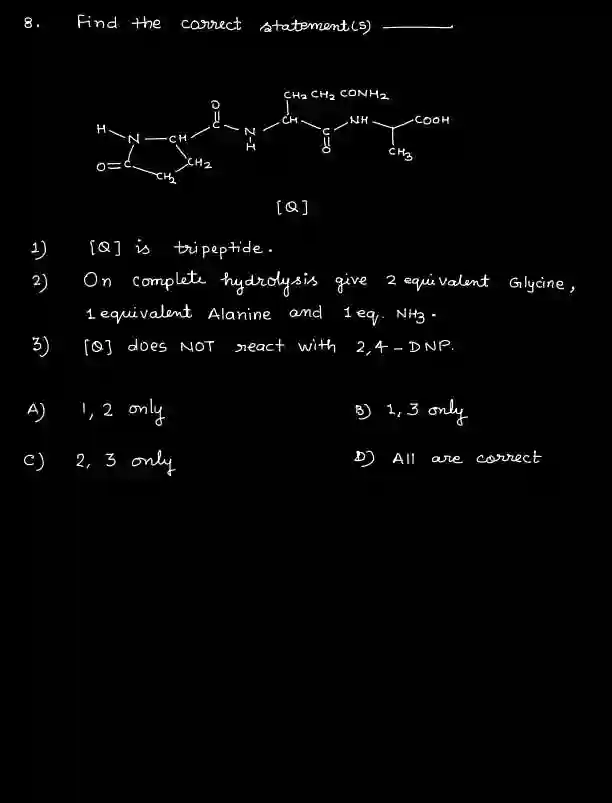 8. Find the correct statement(s) ______
CH2 CH2 CONH2
O
H N CH C N H CH C O NH COOH
CH3
O=C CH2 CH2
[Q]
1) [Q] is tripeptide.
2) On complete hydrolysis give 2 equivalent Glycine,
1 equivalent Alanine and 1 eq. NH3.
3) [Q] does NOT react with 2,4-DNP.
A) 1, 2 only B) 1, 3 only
C) 2, 3 only D) All are correct